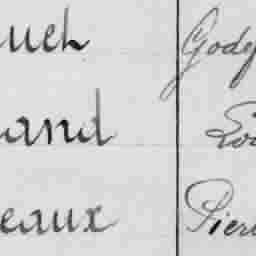 uch Godef
and Lou
eaux Pierr